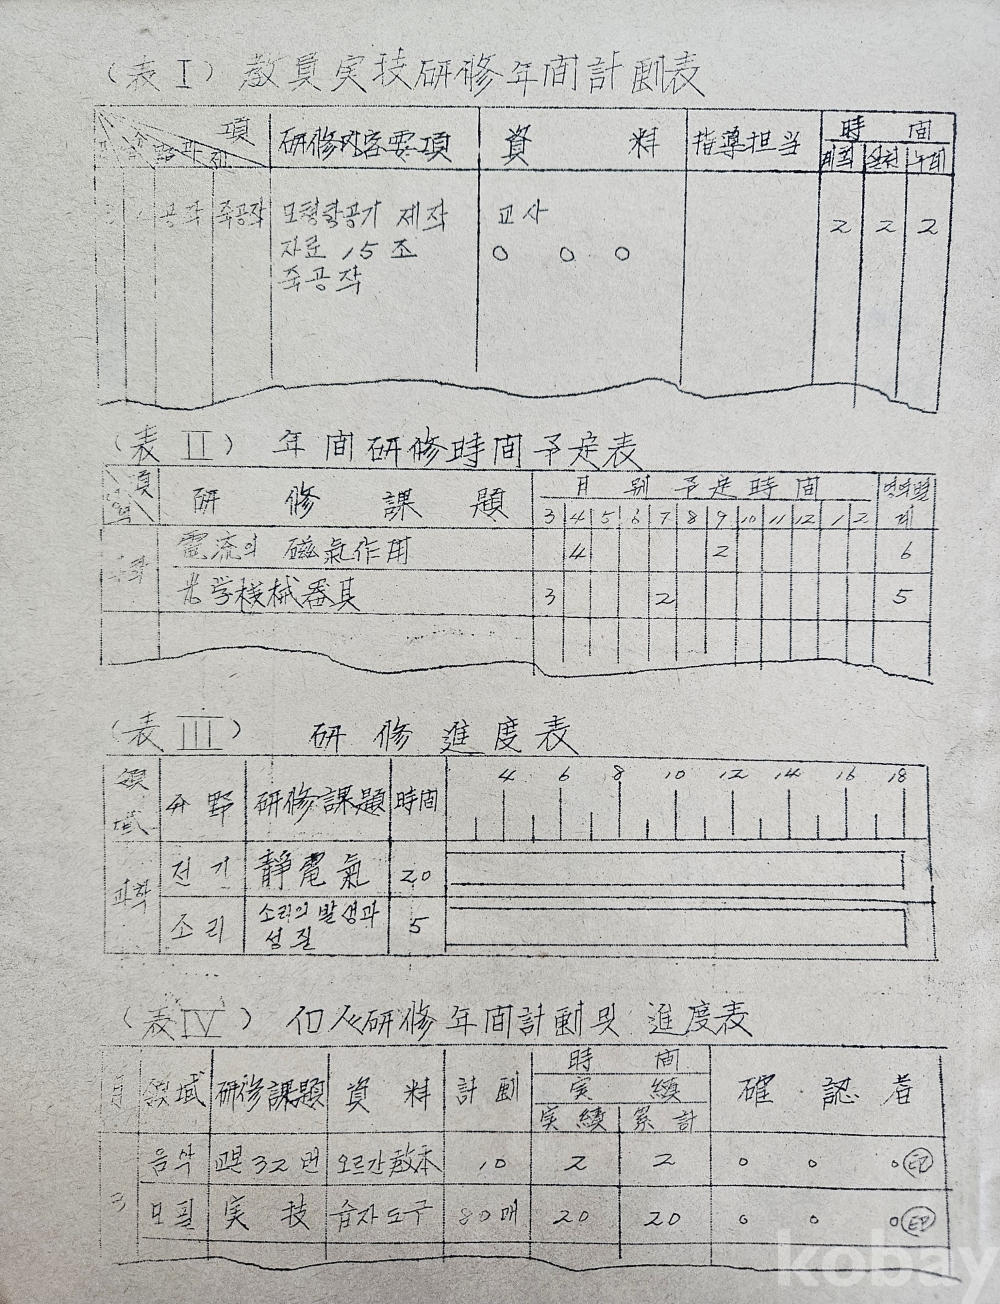 (表 I) 教員実技研修年間計劃表
項 研修内容要項 資 料 指導担当 時 間
계획 실천 누계
공작 죽공작 모형항공기 제작 교사 2 2 2
자료 15 조 ○ ○ ○
죽공작
(表 II) 年間研修時間予定表
項 研 修 課 題 月別予定時間
3 4 5 6 7 8 9 10 11 12 1 2 계
電流의 磁氣作用 4 2 6
光学機械器具 3 2 5
(表 III) 研修進度表
領域 分野 研修課題 時間 4 6 8 10 12 14 16 18
과학 전기 靜電氣 20
소리 소리의 발생과 성질 5
(表 IV) 個人研修年間計劃및 進度表
月 領域 研修課題 資 料 計劃 時 間 確 認 者
実 績
実績 累計
3 음악 교본 32번 오르간 敎本 10 2 2 ○ ○ ○ 印
모필 実技 습자도구 80매 20 20 ○ ○ ○ 印
kobay